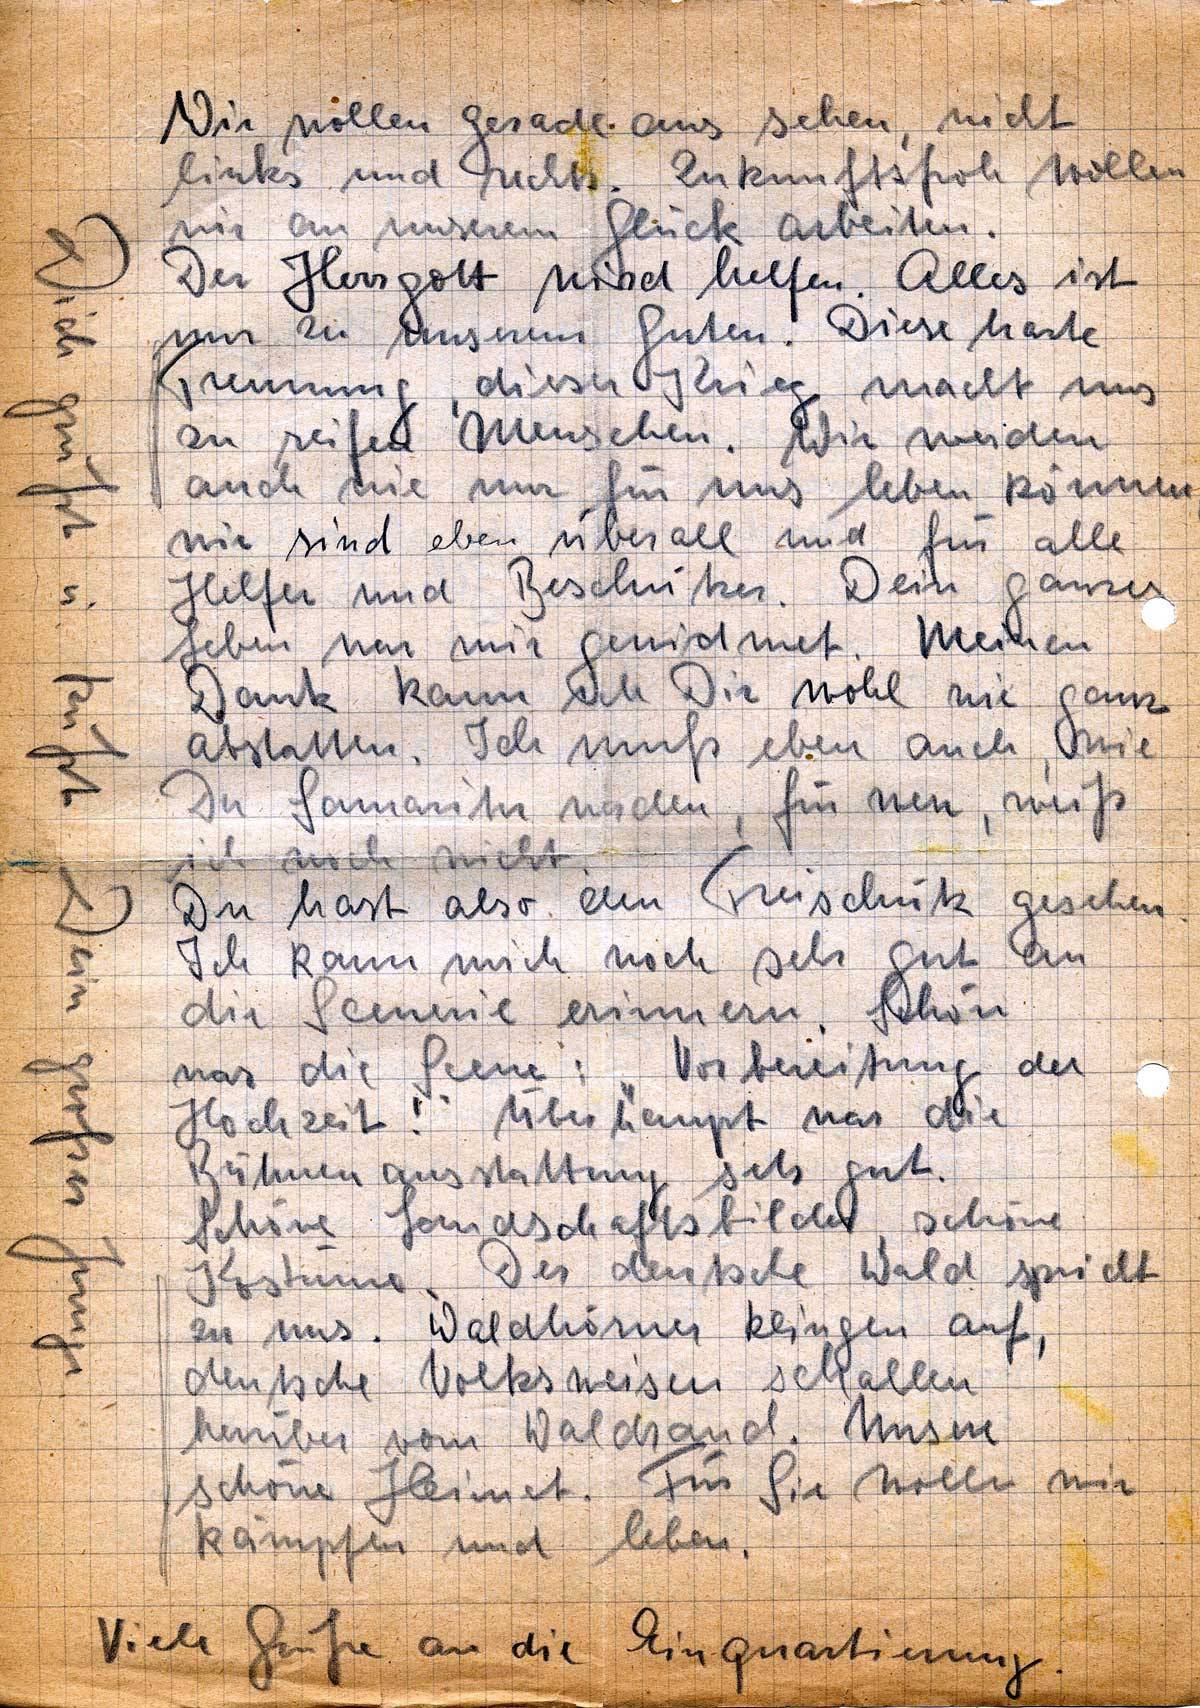 Wir wollen gerade aus sehen, nicht
links und rechts. Zukunftsfroh wollen
wir an unserem Glück arbeiten.
Der Herrgott wird helfen. Alles ist
nur zu unserem Guten. Diese harte
Trennung, dieser Krieg macht uns
zu reifen Menschen. Wir werden
auch nie nur für uns leben können,
wir sind eben überall und für alle
Helfer und Beschützer. Dein ganzes
Leben war mir gewidmet. Meinen
Dank kann ich Dir wohl nie ganz
abstatten. Ich muß eben auch, wie
Du Samariter werden, für wen, weiß
ich noch nicht.
Du hast also den Freischütz gesehen.
Ich kann mich noch sehr gut an
die Scenerie erinnern. Schön
war die Scene: „Vorbereitung der
Hochzeit!" Überhaupt war die
Bühnenausstattung sehr gut.
Schöne Landschaftsbilder, schöne
Kostüme. Der deutsche Wald spricht
zu uns. Waldhörner klingen auf,
deutsche Volksweisen schallen
herüber vom Waldrand. Unsere
schöne Heimat. Für Sie wollen wir
kämpfen und leben.
Viele Grüße an die Einquartierung.
Dich grüßt u. küßt
Dein großer Junge.